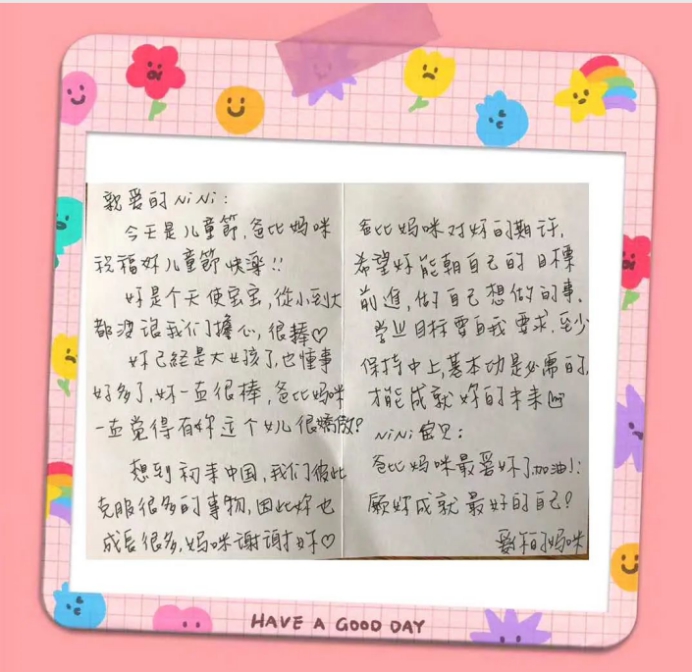 親愛的 NiNi:
今天是儿童節,爸比媽咪
祝福妳儿童節快樂!!
妳是个天使宝宝,從小到大
都沒讓我们擔心,很捧♡
妳已經是大女孩了,也懂事
好多了,妳一直很捧,爸比媽咪
一直覺得有妳这个女儿很嬌傲?
想到初來中国,我们彼此
克服很多的事物,因此妳也
成長很多,媽咪谢谢妳♡
爸比媽咪对妳的期许,
希望妳能朝自己的目標
前進,做自己想做的事.
学业目标要自我要求.至少
保持中上,基本功是必需的,
才能成就妳的未來
NiNi宝貝:
爸比媽咪最愛妳了,加油!
願妳成就最好的自己?
愛妳的媽咪
HAVE A GOOD DAY